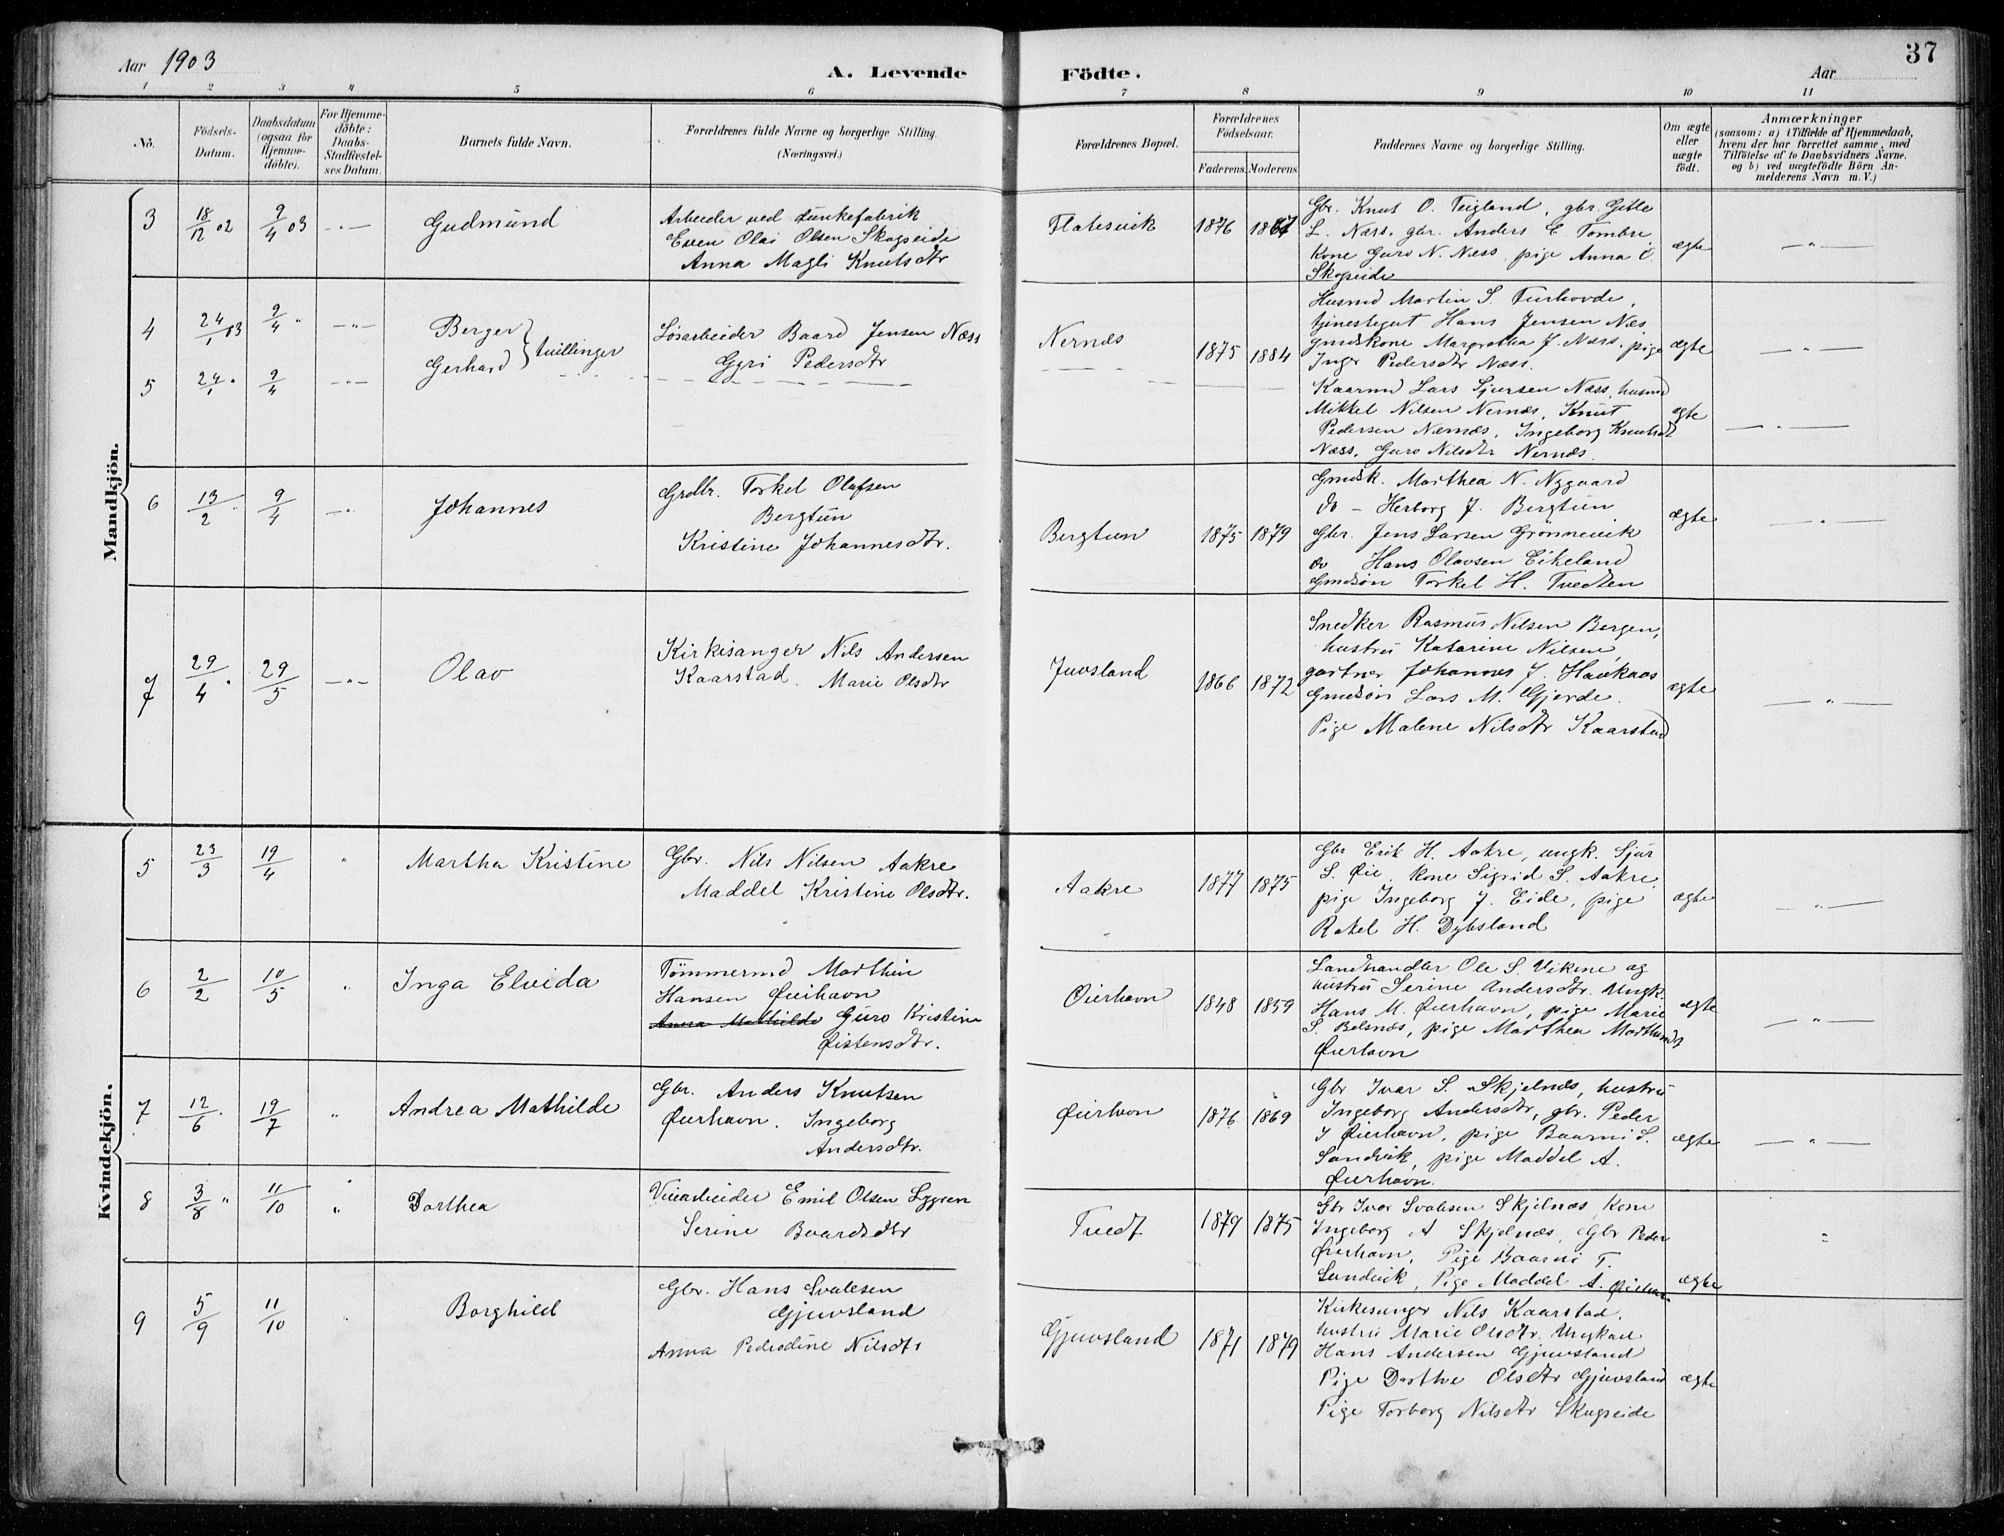 Aar 1903
A. Levende
Födte.
Aar
37
1 2 3 4 5 6 7 8 9 10 11
No.
Födsels-
Datum.
Daabsdatum
(ogsaa for
Hjemme-
döbte).
For Hjemme-
döbte:
Daabs-
Stadfæstel-
ses Datum.
Barnets fulde Navn.
Forældrenes fulde Navne og borgerlige Stilling.
(Næringsvei.)
Forældrenes Bopæl.
Forældrenes
Födselsaar.
Faderens. Moderens
Faddernes Navne og borgerlige Stilling.
Om ægte
eller
uægte
födt.
Anmærkninger
(saasom: a) i Tilfælde af Hjemmedaab,
hvem der har forrettet samme, med
Tilföielse af to Daabsvidners Navne,
og b) ved uægtefödte Börn An-
melderens Navn m. V.)
Mandkjön.
3
18/12 02
9/4 03
-"-
Gudmund
Arbeider ved tønkefabrik
Even Olai Olsen Skogseide
Anna Magli Knutsdtr
Flatesvik
1876
Gbr. Knut O. Teigland, gbr. Gitle
L. Næss, gbr. Anders E Tombre
Kone Guro N. Næss, pige Anna
Skogseide
ægte
-"-
4
24/1 03
9/4 "
-"-
Berger
Gerhard } tvillinger
Baard Jensen Næss
Pedersdtr
Nernæs
1875 1884
Husmd Martin S. Furhovde,
tjenestegut Hans Jensen Næs,
gmdskone Margretha J. Næss, pige
Inger Pedersdtr Næss.
ægte
-"-
5
24/1 "
9/4
-"-
Kaarmd Lars Sjursen Næss, husmd
Mikkel Nilsen Nernæs, Knut
Pedersen Nernæs, Ingeborg Knutsdt
Næss, Guro Nilsdtr Nernæs.
ægte
-"-
6
13/2 "
9/4
-"-
Johannes
Grdbr. Torkel Olafsen
Bergtun
Kristine Johannesdtr.
Bergtun
1875 1879
Gmdsk. Marthea N. Nygaard
do - Herborg J. Bergtun
Gbr. Jens Larsen Grønnevik
do Hans Olavsen Eikeland
Gmdsøn Torkel H. Tvedten
ægte
-"-
7
29/4 "
29/5
-"-
Olav
Kirkesanger Nils Andersen
Kaarstad. Marie Olsdtr
Juvsland
1866 1872
Snedker Rasmus Nilsen Bergen,
hustru Katarine Nilsen
gartner Johannes J. Haukaas
Gmdsøn Lars M. Gjerde.
Pige Malene Nilsdtr Kaarstad
ægte
-"-
Kvindekjön.
5
23/3
19/4
"
Martha Kristine
Gbr. Nils Nilsen Aakre
Maddel Kristine Olsdtr.
Aakre
1877 1875
Gbr Erik H. Aakre, ungk. Sjur
S. Øie, kone Sigrid S. Aakre,
pige Ingeborg J. Eide, pige
Rakel H. Dybsland
ægte
-"-
6
2/2
10/5
"
Inga Elvida
Tømmermd Marthin
Hansen Øierhavn
Anna Mathilde Guro Kristine
Øistensdtr.
Øierhavn
1848 1859
Landhandler Ole S. Vikene og
hustru Serine Andersdtr. Ungk.
Hans M. Øierhavn, pige Marie
S. Belsnæs, pige Marthea Marthinsdt
Øierhavn
ægte
-"-
7
12/6 "
19/7
"
Andrea Mathilde
Gbr. Anders Knutsen
Øierhavn. Ingeborg
Andersdtr.
Øierhavn
1876 1869
Gbr Ivar S. Skjelnæs, hustru
Ingeborg Andersdtr, gbr. Peder
J Øierhavn, pige Baarni S.
Sandvik, pige Maddel A.
Øierhavn.
ægte
-"-
8
3/8 "
11/10
"
Dorthea
Veiarbeider Emil Olsen Lygren
Serine Baardsdtr
Tvedt
1879 1875
Gbr Ivar Svalesen Skjelnæs Kone
Ingeborg A Skjelnæs, Gbr Peder
Øierhavn, Pige Baarni T.
Sandvik, Pige Maddel A. Øierhavn
ægte
"
9
5/9
11/10
"
Borghild
Gbr. Hans Svalesen
Gjuvsland
Anna Pedrodine Nilsdtr
Gjuvsland
1871 1879
Kirkesanger Nils Kaarstad,
hustru Marie Olsdtr. Ungkarl
Hans Andersen Gjuvsland
Pige Dorthe Olsdtr Gjuvsland
Pige Torborg Nilsdtr Skogseide
ægte